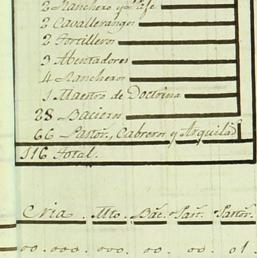 2 Ranchero y Gefe
2 Cavallerangos
2 Tortilleros
3 Abentadores
4 Rancheros
1 Maestro de Doctrina
28 Bacieros
66 Pastor., Cabreros y
116 Total.
Cria. Mto. Bac. Pastor.
00. 000. 000. 00. 00. 01.